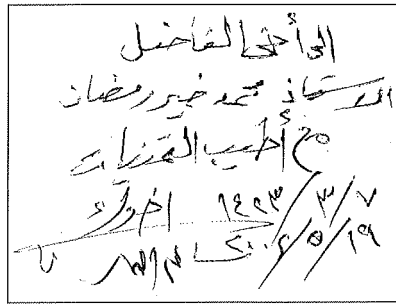 إلى أخي الفاضل
الاستاذ محمد خير رمضان
مع أطيب التمنيات
أخوك ١٤٢٣/٣/٧
٢٠٠٢/٥/١٩